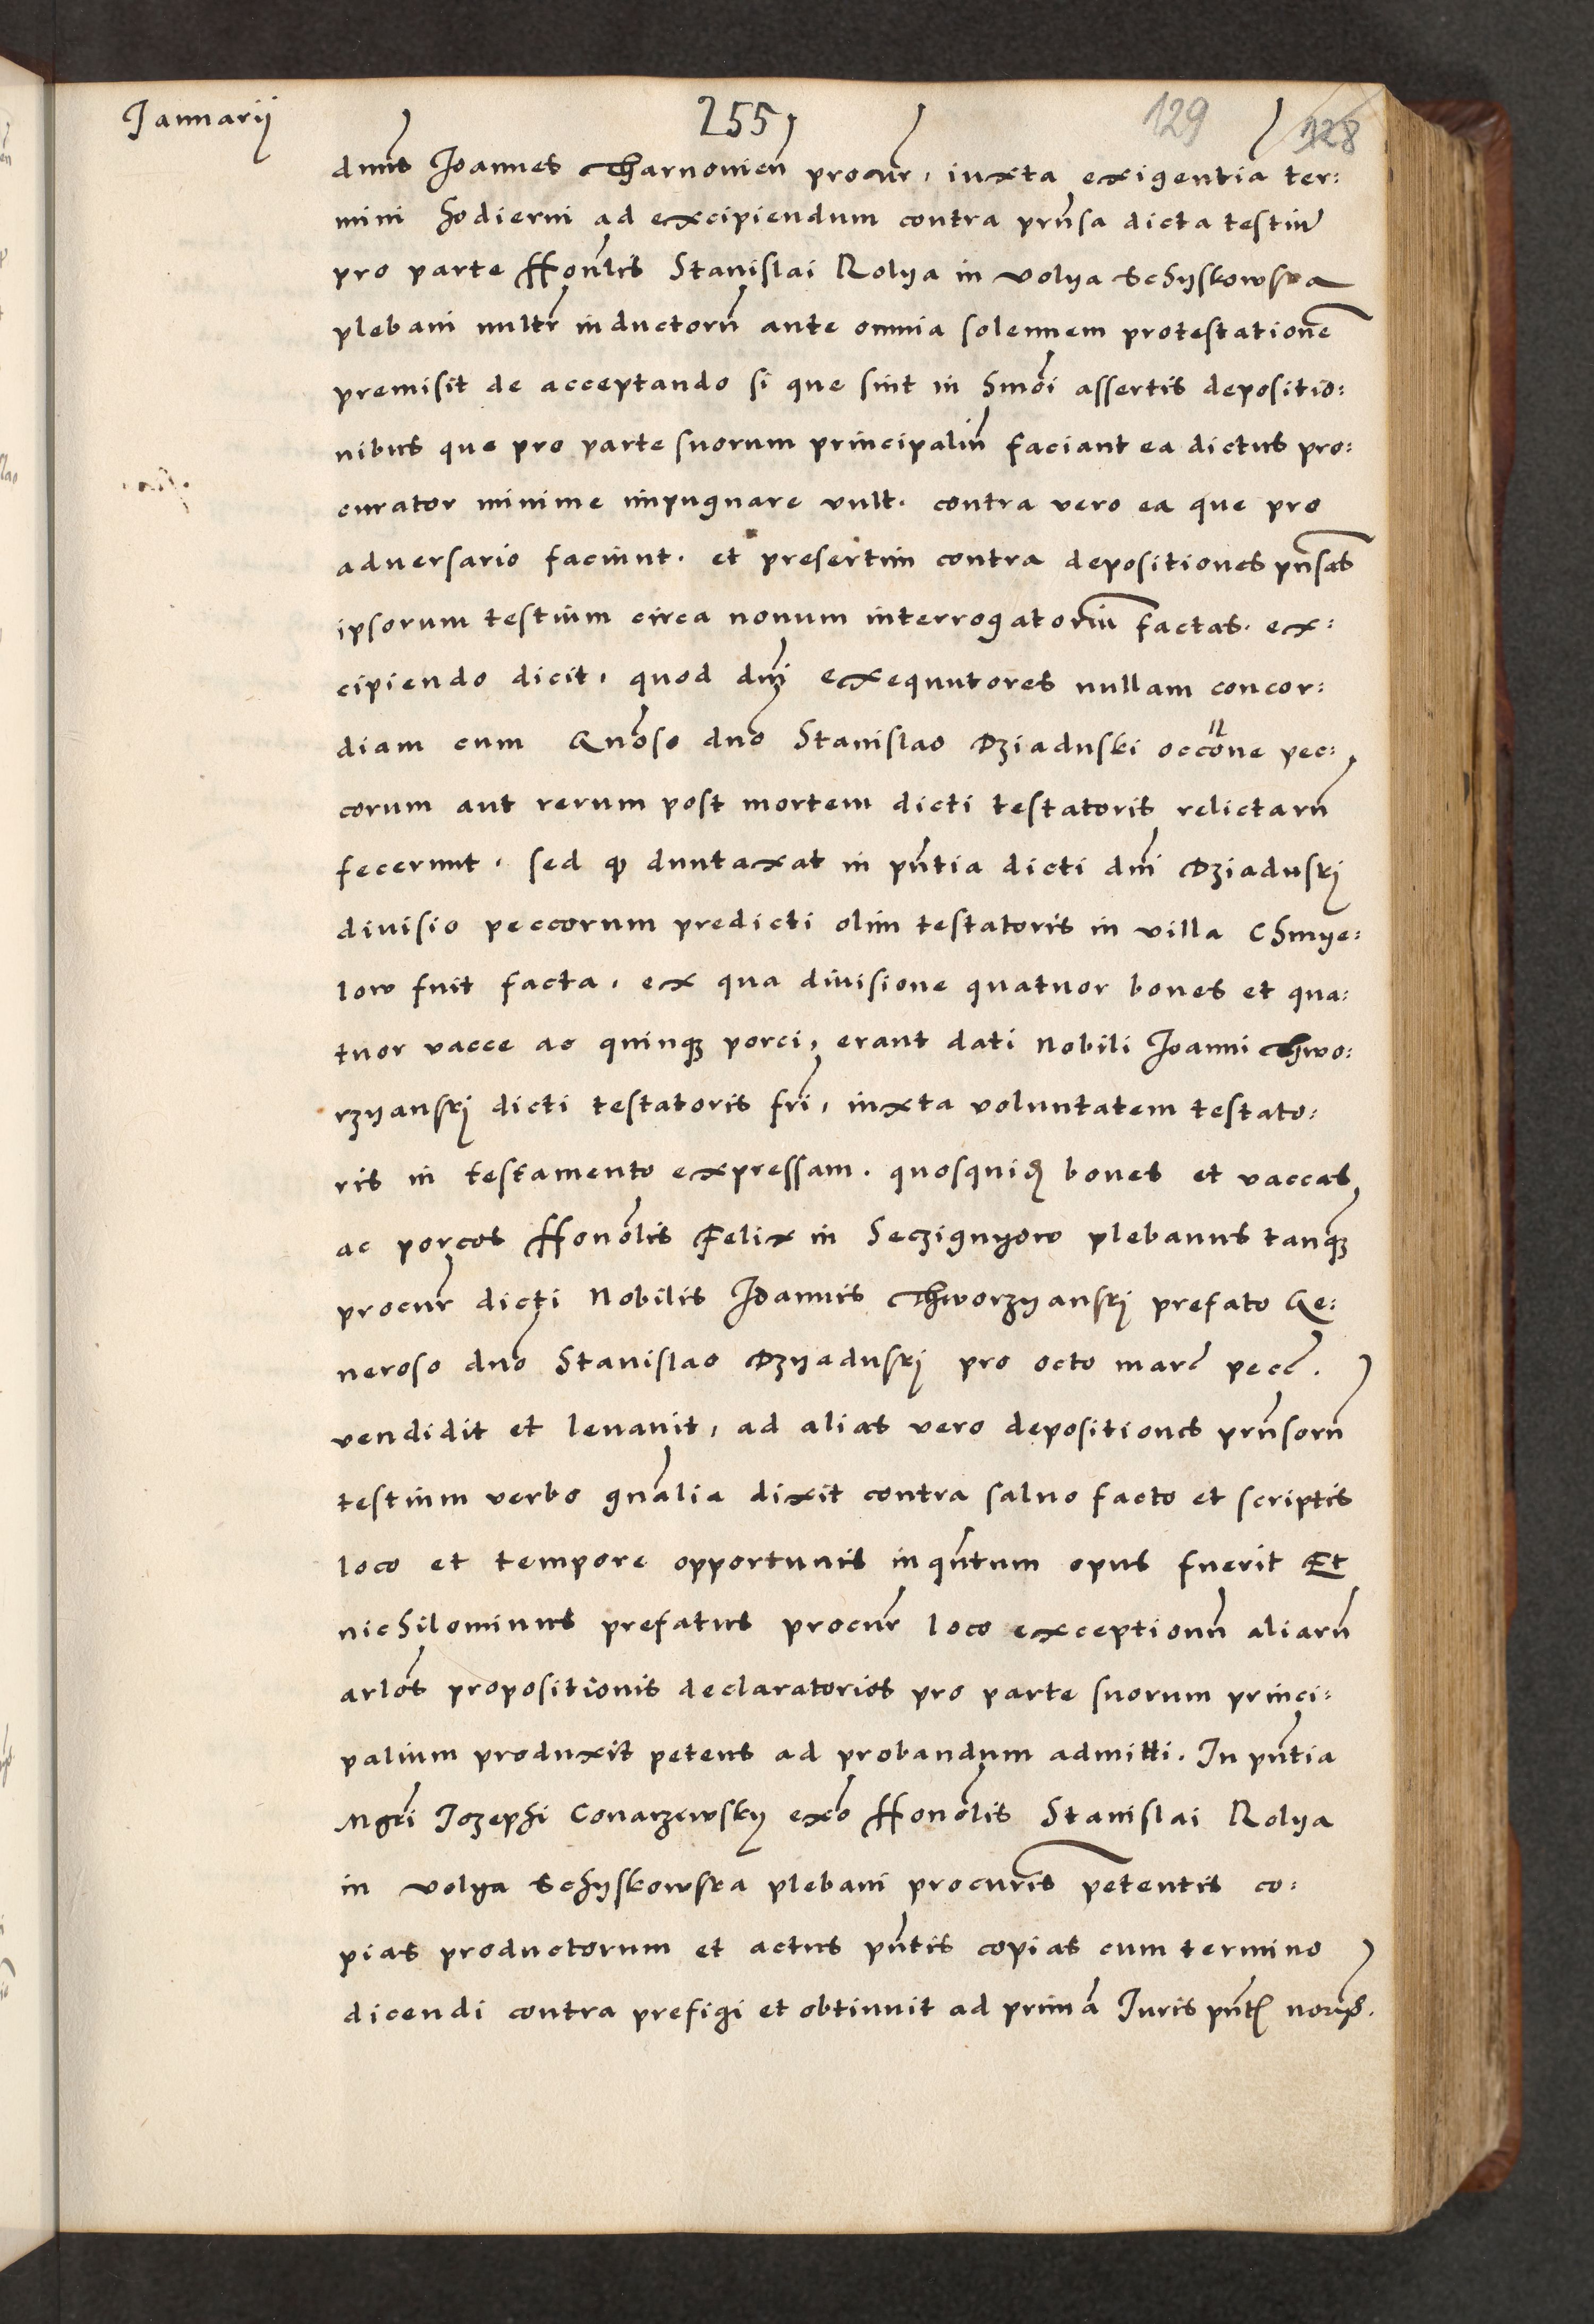 Januarij
255
129
128
dnus Joannes Charnouien procur, iuxta exigentia ter:
mini hodierni ad excipiendum contra prnsa dicta testiu
pro parte Honlis Stanislai Rolya in volya Schyskowska
plebani nultr inductoru ante omnia solennem protestatione
premisit de acceptando si que sint in hmoi assertis depositio:
nibus que pro parte suorum principaliu faciant ea dictus pro:
curator minime impugnare vult. contra vero ea que pro
adversario faciunt. et presertim contra depositiones pnsas
ipsorum testium circa nonum interrogatoriu factas. ex:
cipiendo dicit, quod dni exequutores nullam concor:
diam cum Gnoso dno Stanislao Dziaduski occone pec:
corum aut rerum post mortem dicti testatoris relictaru
fecerunt. sed q duntaxat in pntia dicti dni Dziaduskj
diuisio peccorum predicti olim testatoris in villa Chmye:
low fuit facta, ex qua diuisione quatuor boues et qua:
tuor vacce ac quinq porci, erant dati Nobili Joanni Chwo:
rzyanskj dicti testatoris fri, iuxta voluntatem testato:
ris in testamento expressam. quosquid boues et vaccas
ac porcos Honolis Felix in Seczignyow plebanus tanq
procur dicti Nobilis Joannis Chworzyanskj prefato Ge:
neroso dno Stanislao Dzyaduskj pro octo marc pecc.
vendidit et leuauit, ad alias vero depositiones prnsoru
testium verbo gnalia dixit contra saluo facto et scriptis
loco et tempore opportunis inqntum opus fuerit Et
nichilominus prefatus procur loco exceptionu aliaru
arlos propositionis declaratorios pro parte suorum princi:
palium produxit petens ad probandum admitti. In pntia
Mgri Jozephi Conarzewsky exo Honolis Stanislai Rolya
in volya Schyskowska plebani procuris petentis co:
pias productorum et actus pntis copias cum termino
dicendi contra prefigi et obtinuit ad prima Juris pnt